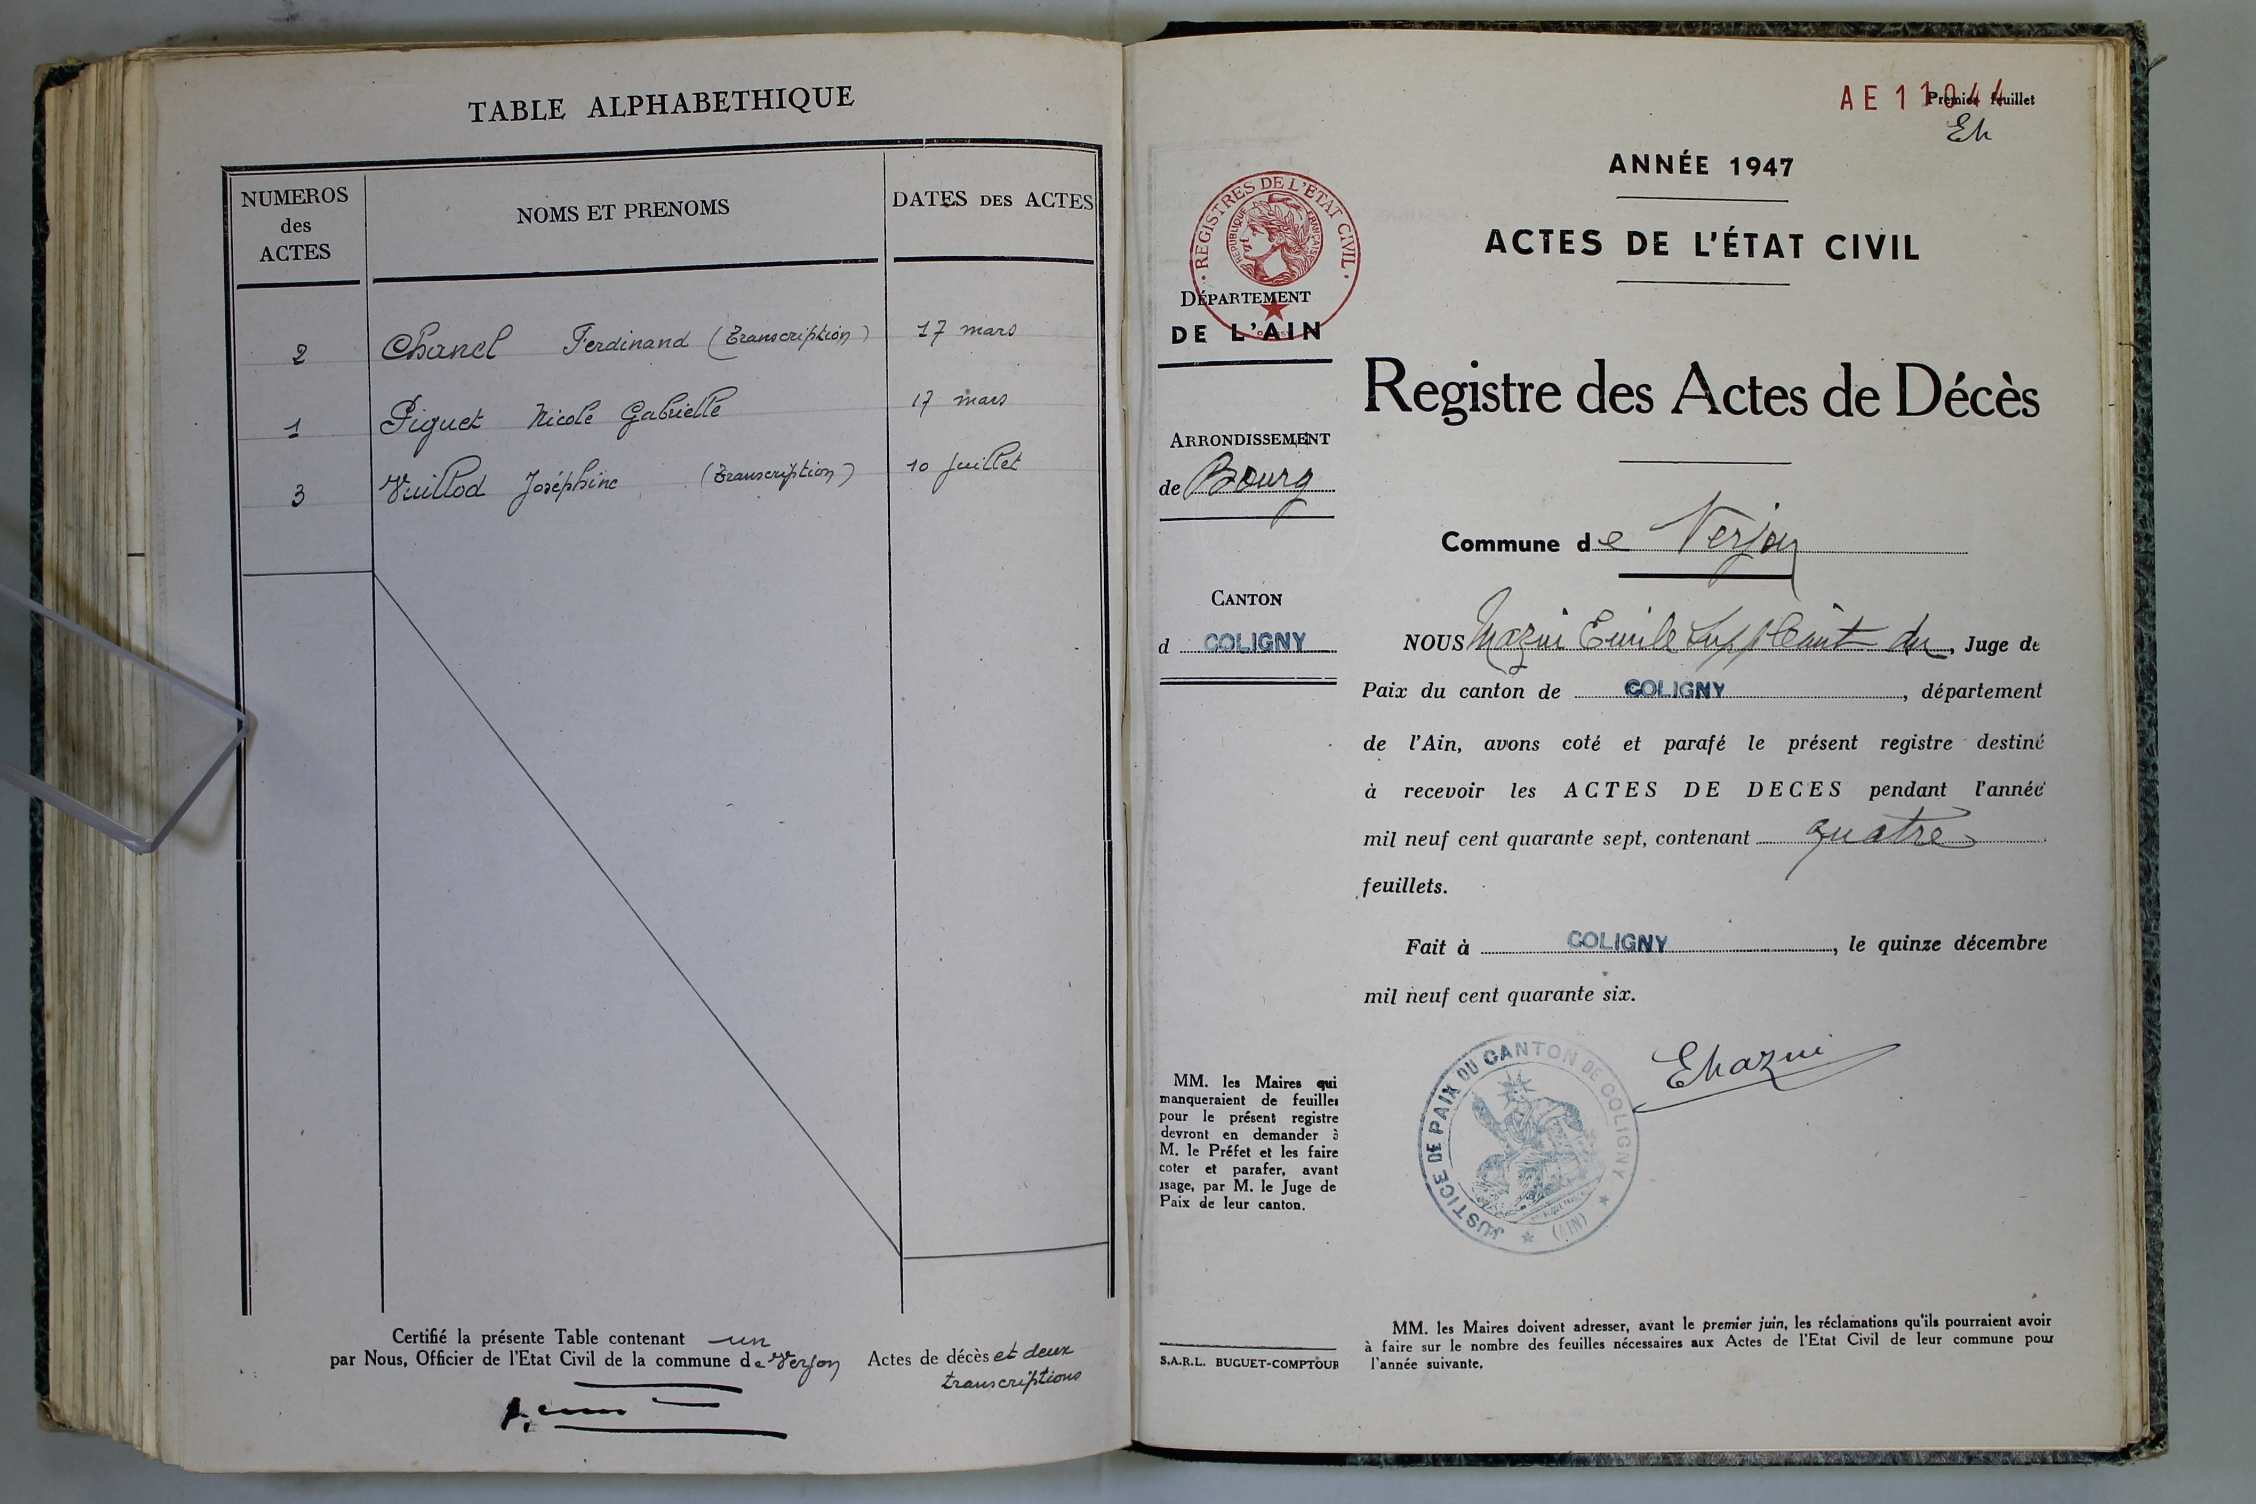 TABLE ALPHABETHIQUE
NUMEROS
des
ACTES
NOMS ET PRENOMS
DATES DES ACTES
2 Chanel Ferdinand (Transcription) 17 mars
1 Piguet Nicole Gabrielle 17 mars
3 Vuillod Joséphine (Transcription) 10 Juillet
Certifié la présente Table contenant un Actes de décès et deux
transcriptions
par Nous, Officier de l'Etat Civil de la commune de Verjon
AE 11044
Premier feuillet
Eh
ANNÉE 1947
ACTES DE L'ÉTAT CIVIL
REGISTRES DE L'ÉTAT CIVIL
REPUBLIQUE FRANÇAISE
DÉPARTEMENT
DE L'AIN
Registre des Actes de Décès
ARRONDISSEMENT
de Bourg
Commune de Verjon
CANTON
d COLIGNY
NOUS Mazui Emile Suppléant du, Juge de
Paix du canton de COLIGNY, département
de l'Ain, avons coté et parafé le présent registre destiné
à recevoir les ACTES DE DECES pendant l'année
mil neuf cent quarante sept, contenant quatre
feuillets.
Fait à COLIGNY, le quinze décembre
mil neuf cent quarante six.
EMazui
JUSTICE DE PAIX DU CANTON DE COLIGNY
(AIN)
MM. les Maires qui
manqueraient de feuilles
pour le présent registre
devront en demander à
M. le Préfet et les faire
coter et parafer, avant
usage, par M. le Juge de
Paix de leur canton.
S.A.R.L. BUGUET-COMPTOUR
MM. les Maires doivent adresser, avant le premier juin, les réclamations qu'ils pourraient avoir
à faire sur le nombre des feuilles nécessaires aux Actes de l'Etat Civil de leur commune pour
l'année suivante.